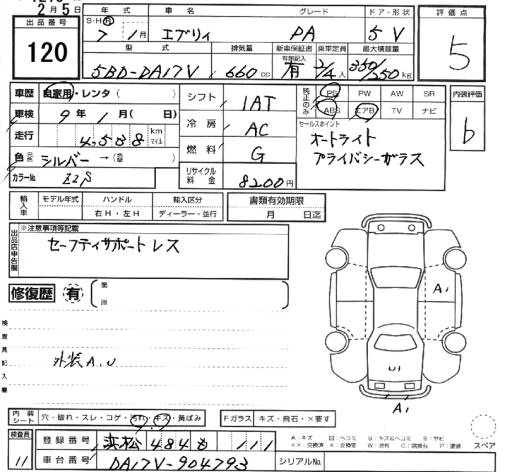 2月5日
出品番号 年式 車名 グレード ドア・形状 評価点
120 S・H・R 7年 1月 エブリィ PA 5V 5
型式 排気量 新車保証書 乗車定員 最大積載量
5BD-DA17V 660cc 有 2/4人 350/250kg
車歴 自家用・レンタ( ) シフト 1AT 純正のみ PS PW AW SR 内装評価
車検 9年 1月( 日) 冷房 AC ABS エアB TV ナビ b
走行 4,538 km マイル 燃料 G セールスポイント
オートライト
プライバシーガラス
色 シルバー→( )
カラーNo. Z2S リサイクル料金 8200円
輸入車 モデル年式 ハンドル 輸入区分 書類有効期限
右H・左H ディーラー・並行 月 日迄
出品店申告欄 ※注意事項等記載
セーフティサポートレス
修復歴 有 箇所
検査員記入欄
外装A.U
A1
U1
A1
内装シート 穴・破れ・スレ・コゲ・汚れ・キズ・黄ばみ Fガラス キズ・飛石・×要す
スペア
検査員 11 登録番号 浜松 484 も 111
車台番号 DA17V-904793 シリアルNo.